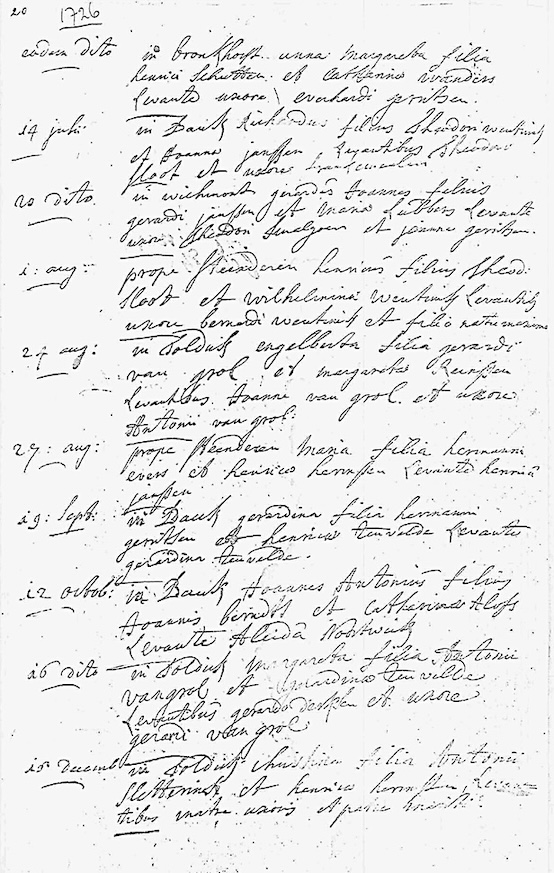 20 1726
eadem dito in bronkhorst anna margareta filia
henrici Schutten et Catharina wanders
Levante uxore everhardi gerritsen.
14 julii in Baick Richardus filius Theodori wentink
et Joanna janssen Levantibus Theodoro
sloot et uxore
20 dito in wichmont gerardus Joannes filius
gerardi janssen et maria Lubbers Levante
uxore Theodori et joanne gerritsen.
1: aug: prope steenderen henricus filius Theod:
sloot et wilhelmina wentink Levantib
uxore bernardi wentink et filio
24 aug: in Toldick engelberta filia gerardi
van grol et margareta Reinssen
Levantibus Joanne van grol et uxore
Antonii van grol.
27: aug: prope steenderen maria filia hermanni
evers et henrica hermssen Levante henrica
janssen
19: Sept: in Baick gerardina filia hermanni
gerritsen et henrica tenvelde Levante
gerardina tenvelde.
12 octob: in Baick Joannes Antonius filius
Joannis berndts et Catharina
Levante Aleida Nootwick
26 dito in Toldick margareta filia Antonii
van grol et gerardina tenvelde
Levantibus gerardo et uxore
gerardi van grol
15 Decemb in Toldick Christina filia Antonii
et henrica hermssen Levan
tibus matre uxoris et patre mariti